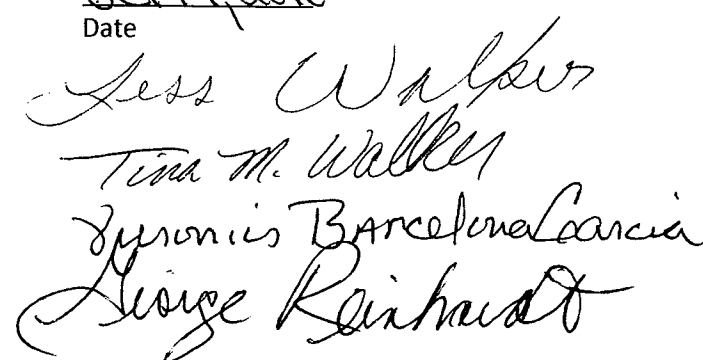 Date
Less Walker
Tina M. Walker
Barcelona Garcia
George Reinhardt